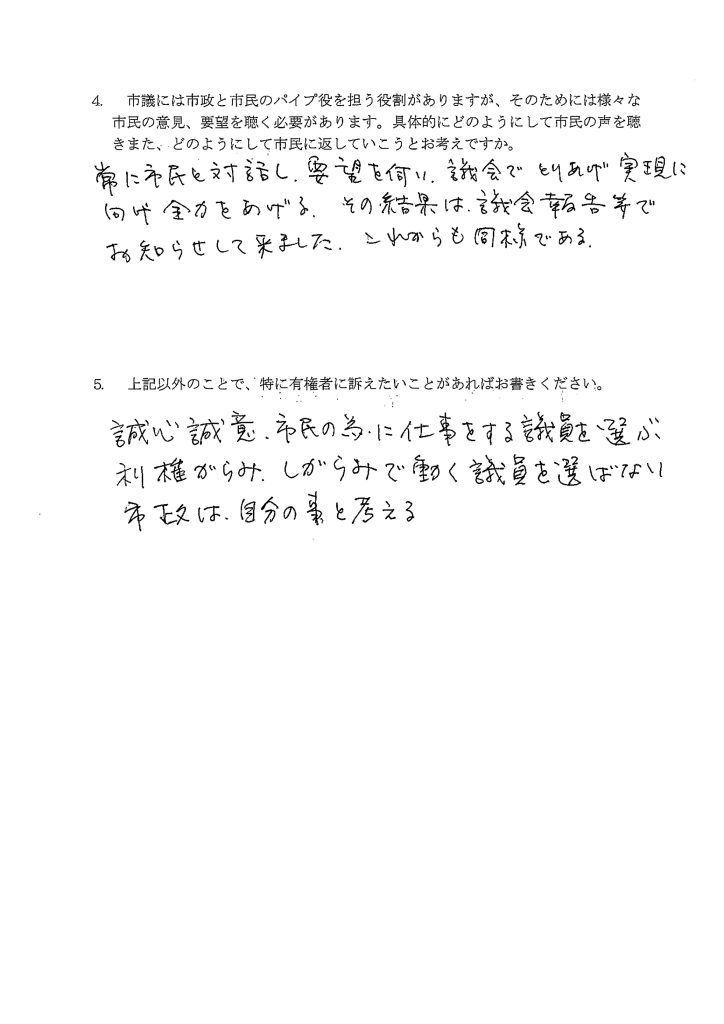 4. 市議には市政と市民のパイプ役を担う役割がありますが、そのためには様々な
市民の意見、要望を聴く必要があります。具体的にどのようにして市民の声を聴
きまた、どのようにして市民に返していこうとお考えですか。
常に市民と対話し、要望を伺い、議会でとりあげ実現に
向け全力をあげる。その結果は、議会報告等で
お知らせして来ました。これからも同様である。
5. 上記以外のことで、特に有権者に訴えたいことがあればお書きください。
誠心誠意、市民の為に仕事をする議員を選ぶ
利権がらみ、しがらみで働く議員を選ばない
市政は、自分の事と考える